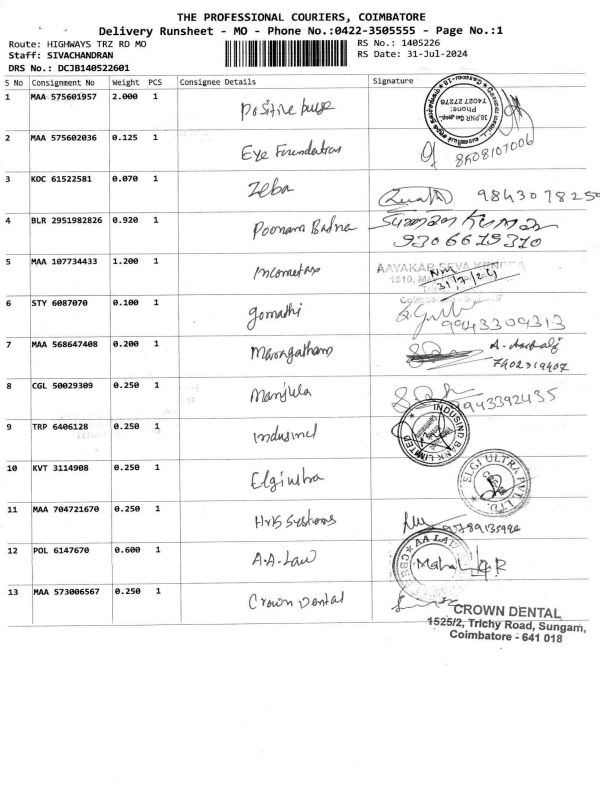 THE PROFESSIONAL COURIERS, COIMBATORE
Delivery Runsheet - MO - Phone No.:0422-3505555 - Page No.:1
Route: HIGHWAYS TRZ RD MO
RS No.: 1405226
Staff: SIVACHANDRAN
RS Date: 31-Jul-2024
DRS No.: DCJB140522601
S No Consignment No Weight PCS Consignee Details Signature
1 MAA 575601957 2.000 1 Positive
Phone:
7402727278
2 MAA 575602036 0.125 1 Eye Foundation 8608107006
3 KOC 61522581 0.070 1 Zeba
4 BLR 2951982826 0.920 1 Poonam Kumar
9306619310
5 MAA 107734433 1.200 1 Incometax AAYAKAR SEVA KENDRA
31/7/24
6 STY 6087070 0.100 1 gomathi
9943309313
7 MAA 568647408 0.200 1
7402319407
8 CGL 50029309 0.250 1 Manjula 9943392435
9 TRP 6406128 0.250 1 indusind INDUSIND BANK LIMITED
10 KVT 3114908 0.250 1 Elgi ultra ELGI ULTRA PVT. LTD.
11 MAA 704721670 0.250 1 Systems
12 POL 6147670 0.600 1 A.A-Law AA LAW
13 MAA 573006567 0.250 1 Crown Dental
CROWN DENTAL
1525/2, Trichy Road, Sungam,
Coimbatore - 641 018